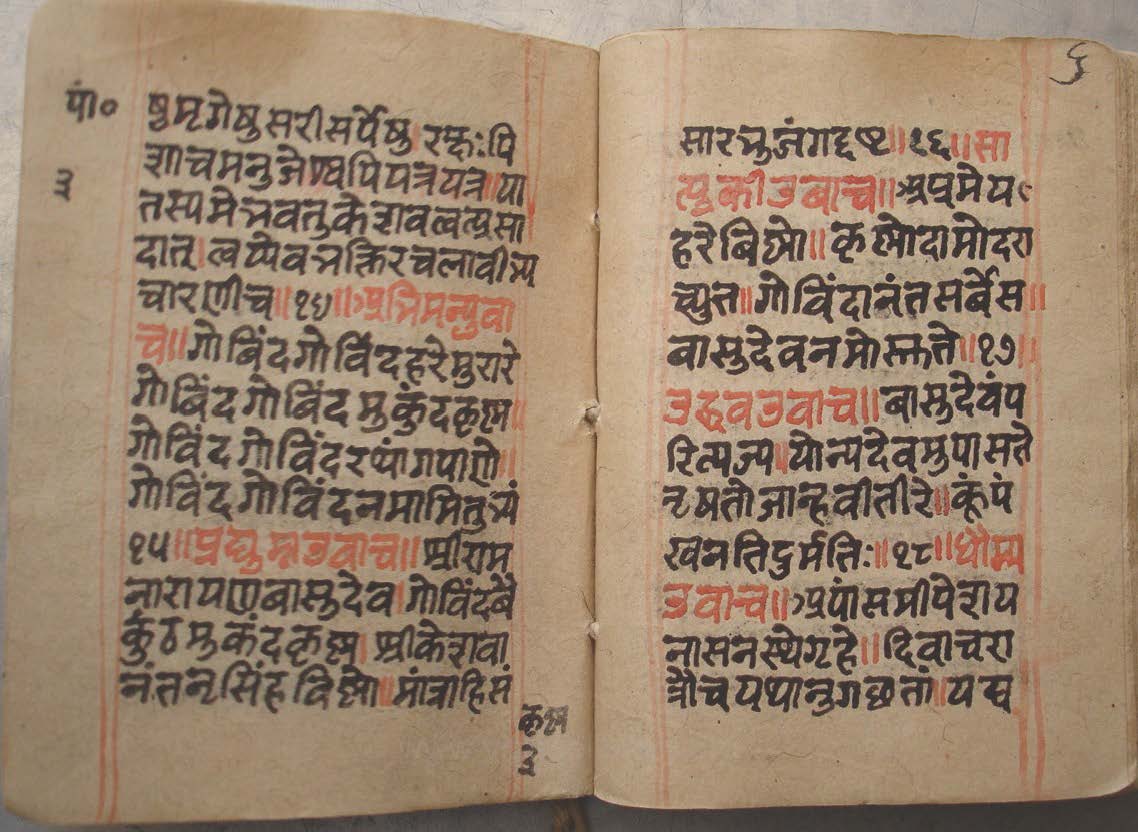 पां०
३
षुमृगेषुसरीसर्पेषु।रक्षःपि
शाचमनुजेष्वपियत्रयत्र॥या
तस्यमेभवतुकेशवत्वत्प्रसा
दात्।त्वय्येवभक्तिरचलाव्यभि
चारणीच॥१४॥अभिमन्युवा
च॥गोबिंदगोविंदहरेमुरारे
गोबिंदगोबिंदमुकुंदकृष्ण॥
गोविंदगोविंदरथांगपाणे॥
गोविंदगोविंदनमामितुभ्यं
१५॥प्रद्युम्नउवाच॥श्रीराम
नारायणबासुदेव।गोविंदबै
कुंठमुकंदकृष्ण।श्रीकेशवा
नंतनृसिंहविष्णो॥मांत्राहिसं
कृष्ण
३
६
सारभुजंगदष्ट॥१६॥सा
त्यकीउबाच॥अप्रमेय
हरेबिष्णो॥कृष्णोदामोदरा
च्युत॥गोविंदानंतसर्बेस॥
बासुदेवनमोस्तुते॥१७॥
उद्धवउवाच॥बासुदेवंप
रित्यज्य॥योन्यदेवमुपासते
तृषतोजान्हवीतीरे॥कूंपं
खनतिदुर्मतिः॥१८॥धौम्य
उवाच॥अपांसमीपेशय
नासनस्थेगृहे॥दिवाचरा
त्रौचयथानुगछतां॥यद्य